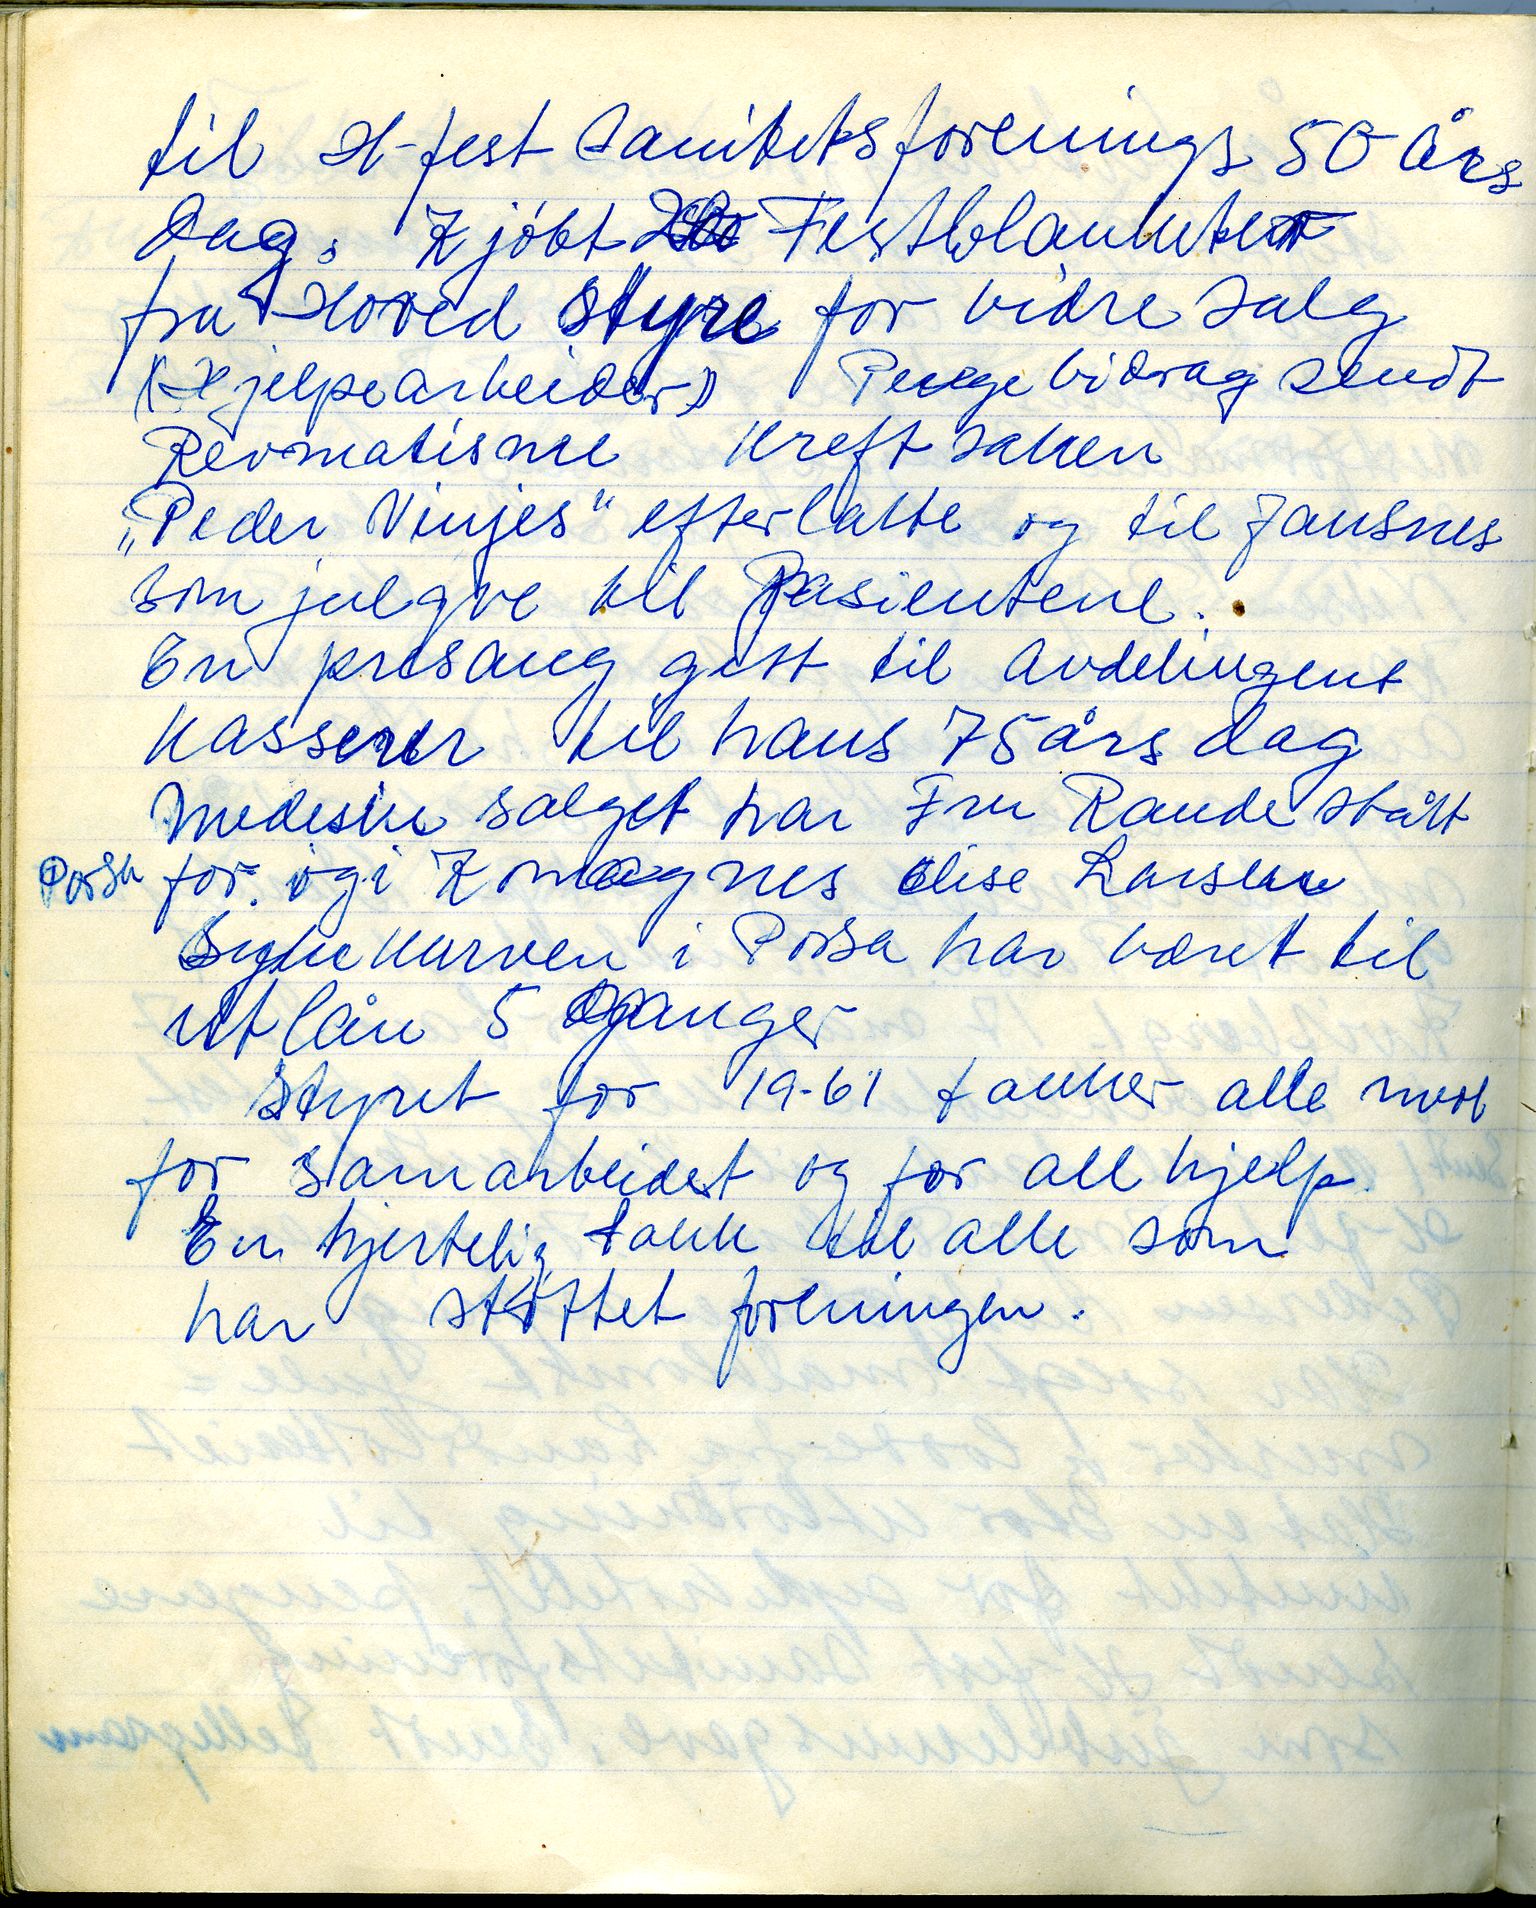 til H-fest Sanitetsforenings 50 års
dag. Kjøbt Festblanketer
fra Hoved styre for vidre salg
(Hjelpearbeider) Penge bidrag sendt
Revmatisme Kreft saken
„Peder Vinjes" efterlatte og til Jansnes
som julgve til Pasientene.
En presang gitt til avdelingent
Kasserer til hans 75 års dag
Medesin salget har Fru Rande stått
Porsa for. og i Komagnes Elise Larsen
Sykekurven i Porsa har været til
utlån 5 ganger
Styret for 19-61 takker alle
for samarbeidet og for all hjelp.
En hjertelig takk til alle som
har støttet foreningen.